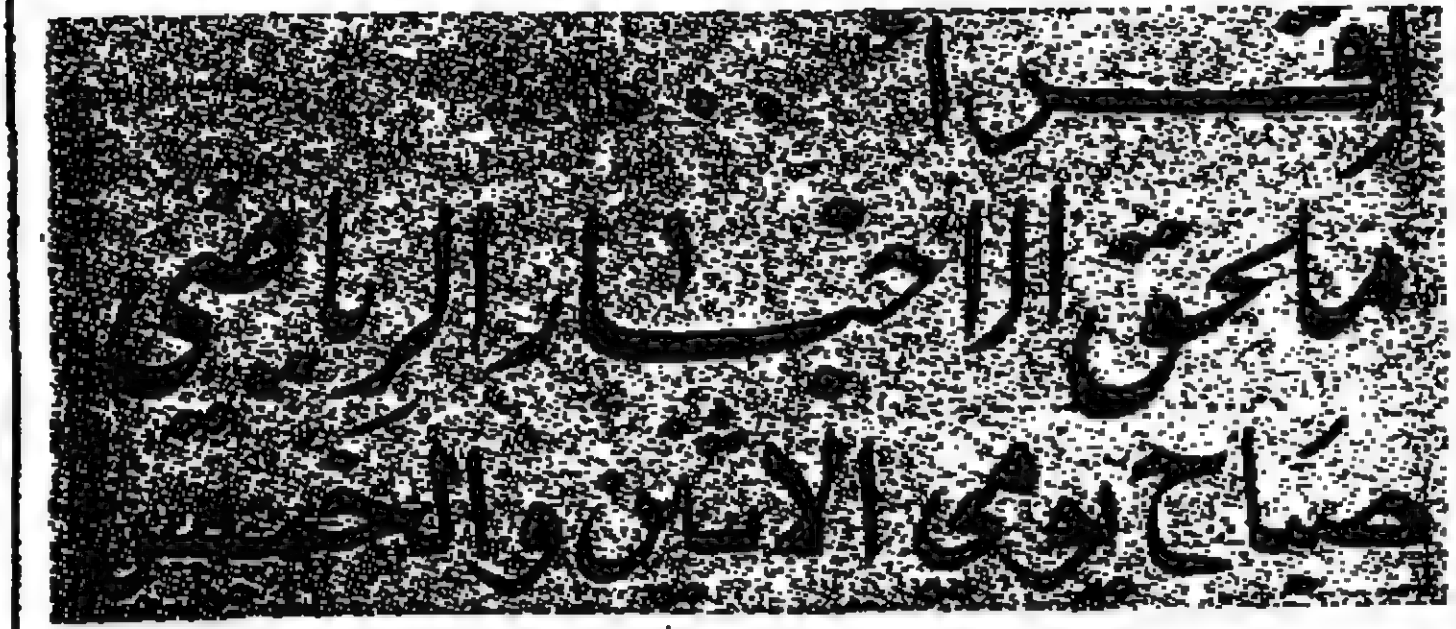 اقرأ
ملحق الأخبار الرياضي
صباح يومي الاثنين والخميس